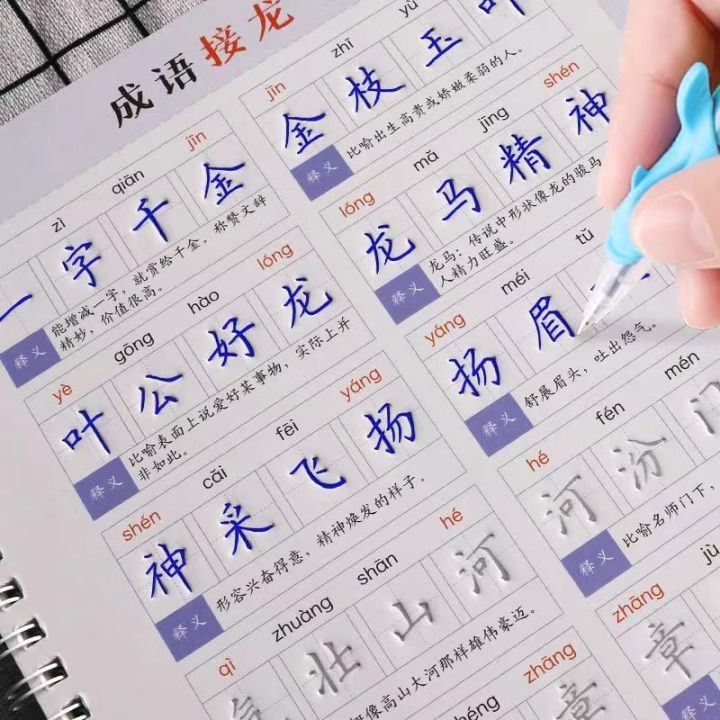 成语接龙
zì qiān jīn
一字千金
释义 能增减一字，就赏给千金。称赞文辞
精妙，价值很高。
jīn zhī yù
金枝玉叶
释义 比喻出生高贵或娇嫩柔弱的人。
yè gōng hào lóng
叶公好龙
释义 比喻表面上说爱好某事物，实际上并
非如此。
lóng mǎ jīng shén
龙马精神
释义 龙马：传说中形状像龙的骏马
人精力旺盛。
shén cǎi fēi yáng
神采飞扬
释义 形容兴奋得意，精神焕发的样子。
yáng méi tǔ
扬眉
释义 舒展眉头，吐出怨气。
qì zhuàng shān hé
壮山河
像高山大河那样雄伟豪迈。
hé fén mén
河汾门
释义 比喻名师门下，
zhāng
章
zhāng jù
章
释义